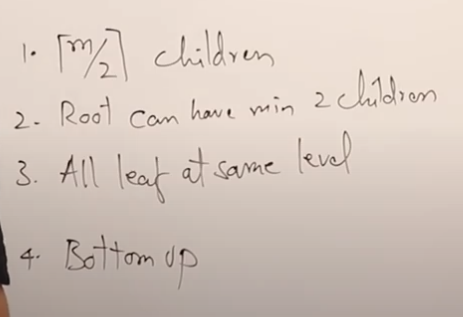 1. ⌈m/2⌉ children
2. Root can have min 2 children
3. All leaf at same level
4. Bottom up